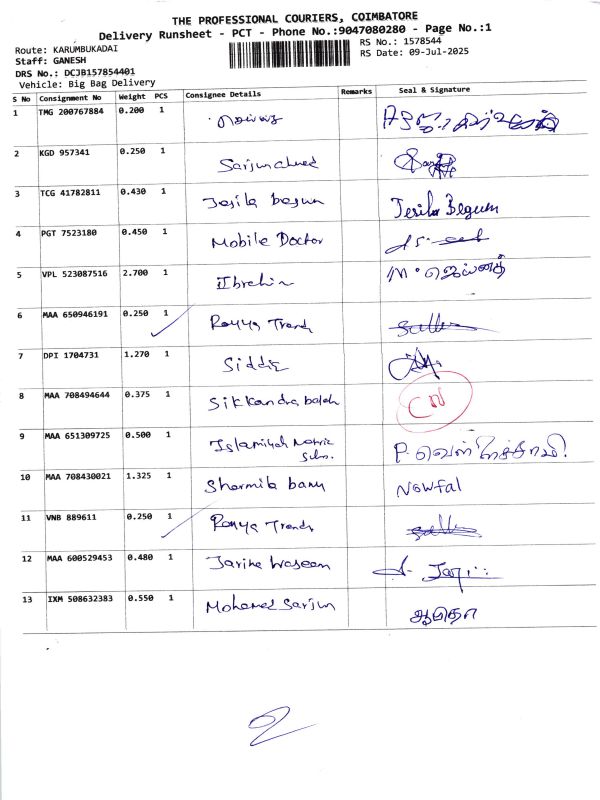 THE PROFESSIONAL COURIERS, COIMBATORE
Delivery Runsheet - PCT - Phone No.:9047080280 - Page No.:1
Route: KARUMBUKADAI
RS No.: 1578544
Staff: GANESH
RS Date: 09-Jul-2025
DRS No.: DCJB157854401
Vehicle: Big Bag Delivery
S No Consignment No Weight PCS Consignee Details Remarks Seal & Signature
1 TMG 200767884 0.200 1
2 KGD 957341 0.250 1 Sarjun ahmed
3 TCG 41782811 0.430 1 Jesila begum Jesila Begum
4 PGT 7523180 0.450 1 Mobile Doctor
5 VPL 523087516 2.700 1 Ibrahim M. ஜெய்னத்
6 MAA 650946191 0.250 1 Ramya Trends
7 DPI 1704731 1.270 1 Siddiq
8 MAA 708494644 0.375 1 Sikkandra CN
9 MAA 651309725 0.500 1 Islamiyah Matric P. வெள்ளைச்சாமி
10 MAA 708430021 1.325 1 Sharmila banu Nowfal
11 VNB 889611 0.250 1 Ramya Trends
12 MAA 600529453 0.480 1 Jarina waseem
13 IXM 508632383 0.550 1 Mohamed Sarjun ஆமிதா